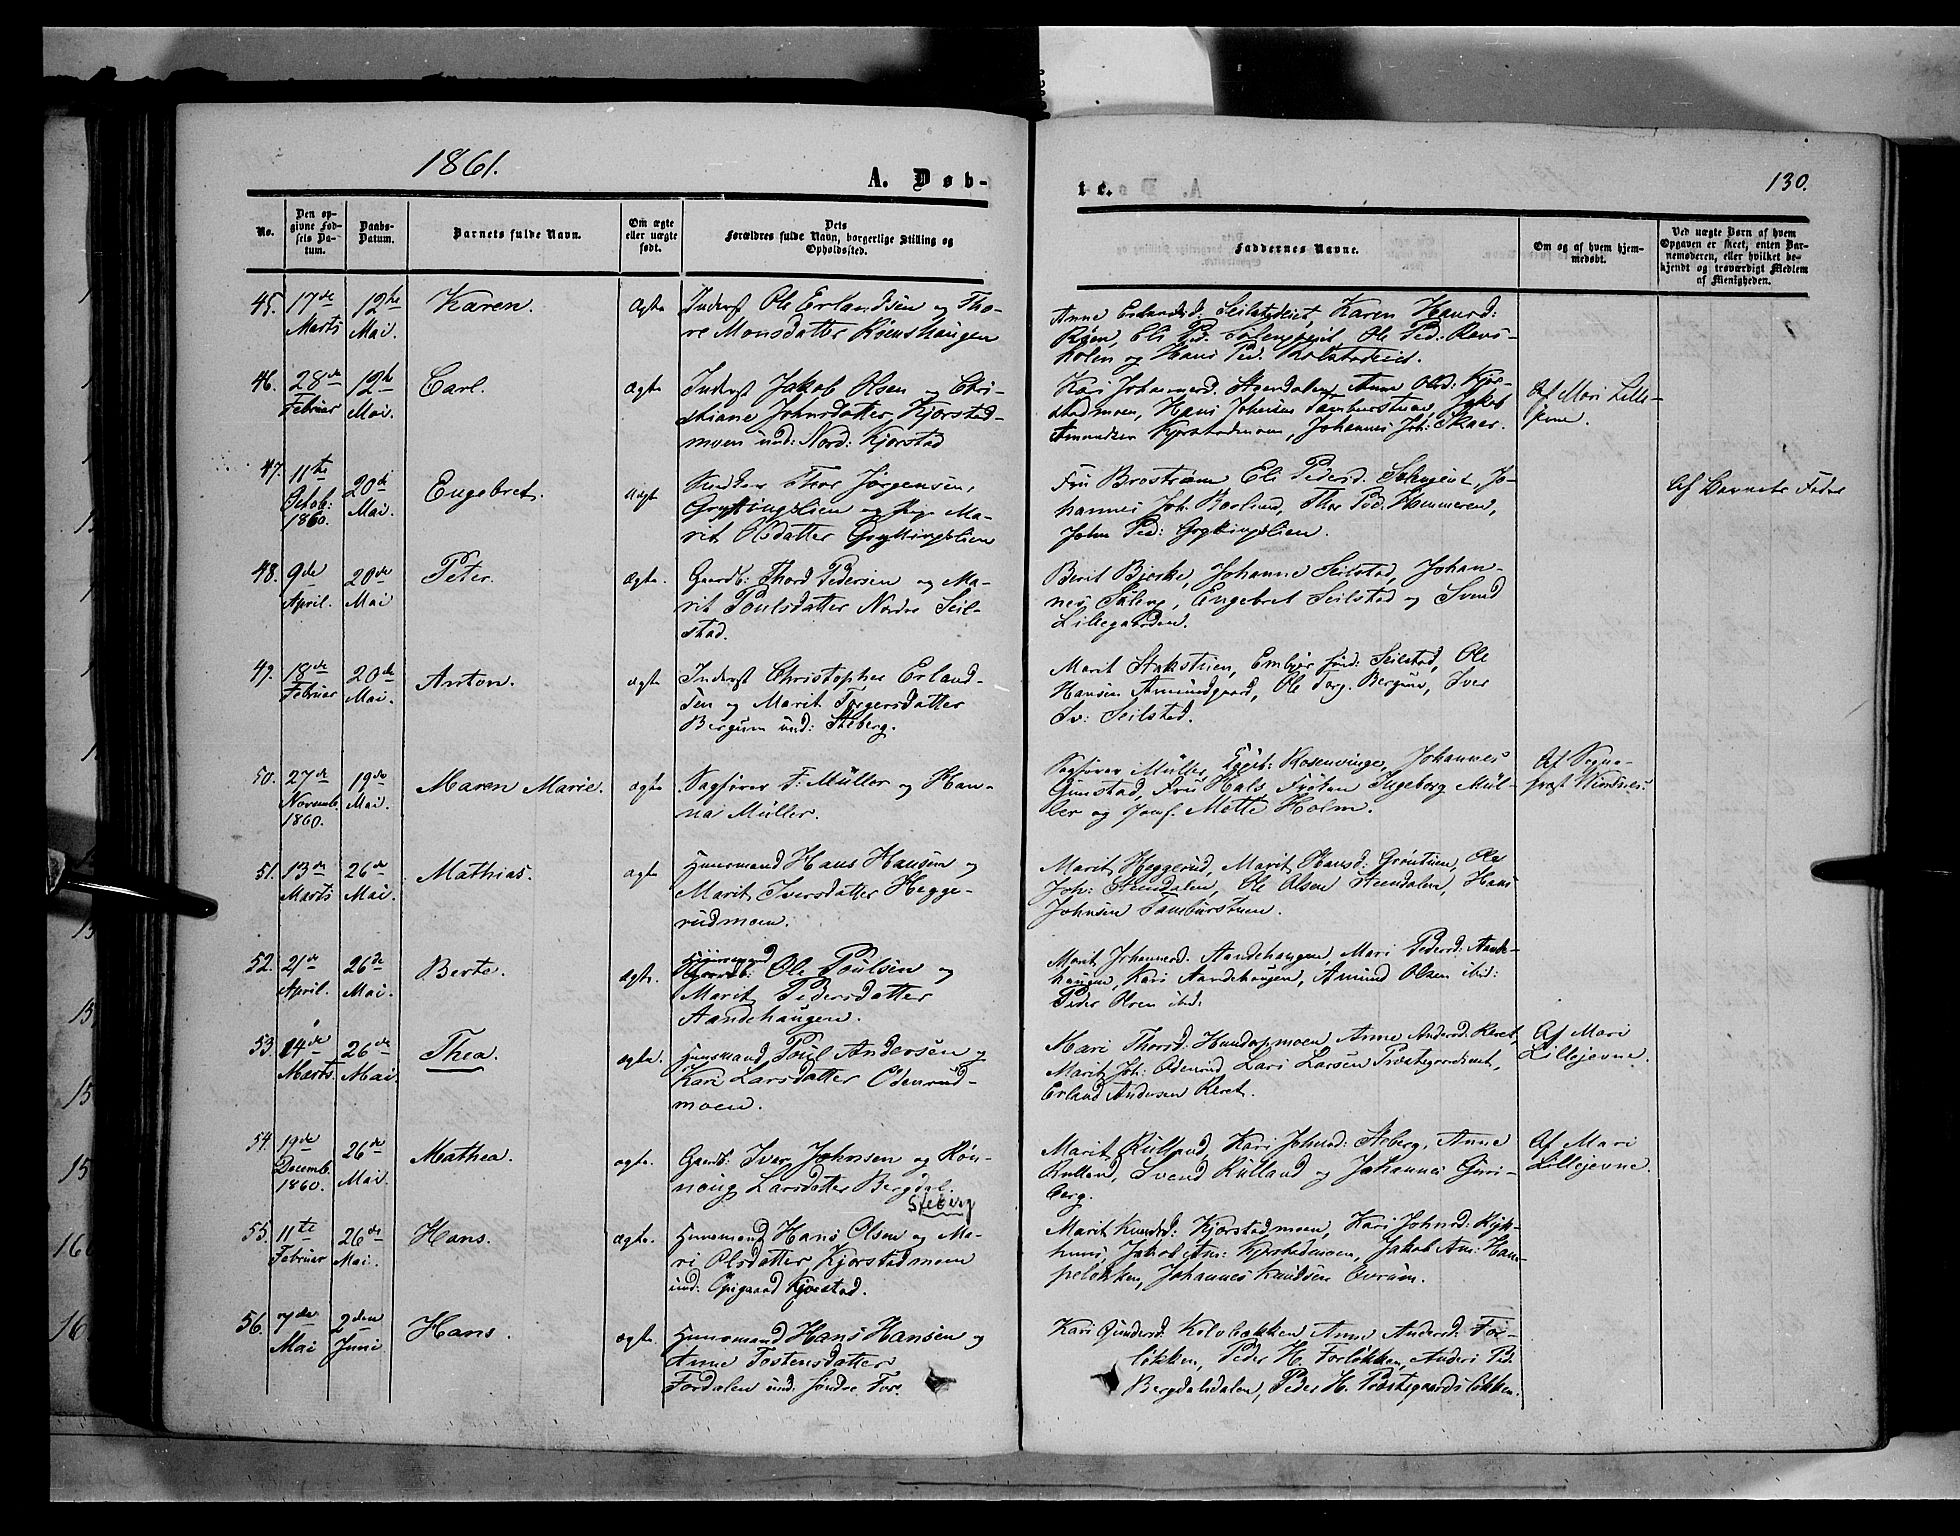 1861.
A. Døb-
te.
130.
No.
Den op-
givne Fød-
sels Da-
tum.
Daabs-
Datum.
Barnets fulde Navn.
Om ægte
eller uægte
født.
Dets
Forældres fulde Navn, borgerlige Stilling og
Opholdssted.
Faddernes Navne.
Om og af hvem hjem-
medøbt.
Ved uægte Børn af hvem
Opgaven er skeet, enten Bar-
nemoderen, eller hvilket be-
kjendt og troværdigt Medlem
af Menigheden.
45. 17de Marts
12te Mai.
Karen.
Ægte
Inderst Ole Erlandsen og Tho-
re Monsdatter
Anne Erlandsd: Karen Hansd:
Eli Ped. Ole Ped:
og Hans Ped.
46. 28de Februar
12te Mai.
Carl.
ægte
Inderst Jakob Olsen og Chri-
stiane Johnsdatter, Kjorstad-
moen und: Nord: Kjorstad
Kari Johannesd. Steendalen, Anne Olsd: Kjor-
stadmoen, Hans Johnsen Tamburstuen, Jakob
Amundsen Kjorstadmoen, Johannes Joh: Skaer.
Af Mari Lille-
47. 11te Octob: 1860.
20de Mai.
Engebret.
uægt
Ungkarl Thor Jørgensen,
Gryttingslien og Pige Ma-
rit Olsdatter Gryttingslien
Fru Brostrøm Eli Pedersd. Jo-
hannes Joh. Thor Ped. Hammeren,
John Ped: Gryttingslien.
Af Barnets Fader
48. 9de April.
20de Mai
Peter.
ægte.
Gaardb: Thord Pedersen og Ma-
rit Poulsdatter Nordre Seil-
stad.
Berit Bjerke, Johanne Seilstad, Johan-
nes Engebret Seilstad og Svend
Lillegaarden.
49. 18de Februar
20de Mai.
Anton.
ægte
Inderst Christopher Erland-
sen og Marit Torgersdatter
Bergum und: Steberg.
Marit Stakstuen, Embjør Sønd: Seilstad, Ole
Hansen Amundgaard, Ole Torg. Bergum, Iver
Iv: Seilstad.
50. 27de Novemb. 1860.
19de Mai.
Maren Marie.
ægte
Sagfører F: Müller og Han-
na Müller.
Sagfører Müller, Rosenvinge, Johannes
Gunstad, Fru Hals, Frøken Ingeborg Mül-
ler og Jomf. Mette Holm.
Af Sogne-
præst
51. 13de Marts
26de Mai.
Mathias.
ægte
Huusmand Hans Hansen og
Marit Iversdatter Hegge-
rudmoen.
Marit Heggerud, Marit Hansd: Grønstuen, Ole
Joh: Steendalen, Ole Olsen Steendalen, Hans
Johnsen Tamburstuen.
52. 21de April.
26de Mai.
Berte.
ægte.
Huusmand
Gaardb: Ole Poulsen og
Marit Pedersdatter
Aandehaugen.
Marit Johannesd. Aandehaugen, Mari Pedersd: Aande-
haugen, Kari Aandehaugen, Amund Olsen ibid:
Peder Olsen ibid:
53. 14de Marts.
26de Mai.
Thea.
ægte.
Huusmand Poul Andersen og
Kari Larsdatter Odenrud-
moen.
Mari Thorsd: Hundorpmoen, Anne Andersd. Reret,
Marit Joh: Odenrud, Lars Larsen
Erland Andersen Reret.
Af Mari
Lillejevne.
54. 19de Decemb. 1860.
26de Mai.
Mathea.
ægte.
Gaardb: Iver Johnsen og Røn-
naug Larsdatter Bergdal.
Steberg
Marit Rulland, Kari Johnsd: Steberg, Anne
Rulland, Svend Rulland og Johannes Guri-
berg.
Af Mari
Lillejevne.
55. 11te Februar
26de Mai.
Hans.
ægte.
Huusmand Hans Olsen og Ma-
ri Olsdatter, Kjorstadmoen
und: Opigaard Kjorstad.
Marit Knudsd: Kjorstadmoen, Kari Johnsd:
Jakob Am: Kjorstadmoen, Jakob Am: Ham-
peløkken, Johannes Knudsen
56. 7de Mai
2den Juni
Hans.
ægte.
Huusmand Hans Hansen og
Anne Tostensdatter
Fordalen und: søndre For.
Kari Gundersd. Kolobækken, Anne Andersd: For-
løkken, Peder H. Forløkken, Anders Ped:
Bergdalsdalen, Peder H. Præstegaardsløkken.